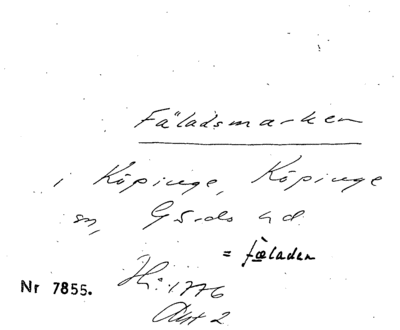 Fäladsmarken
i Köpinge, Köpinge
sn, Gärds hd
= fäladen
Nr 7855. Hi: 1776
Akt 2